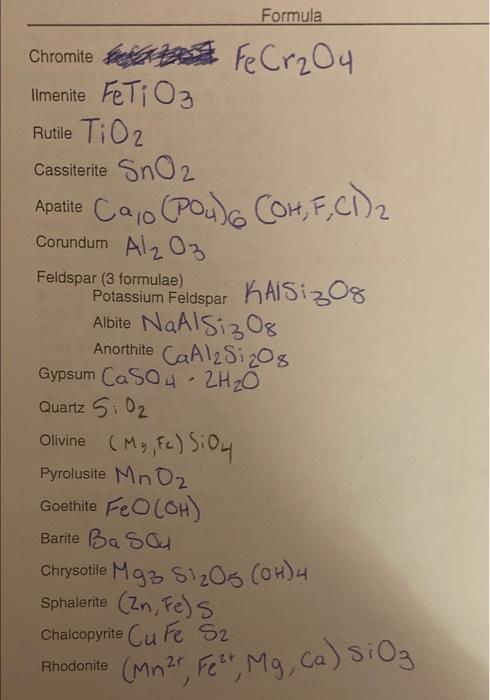 Formula
Chromite FeCr₂O₄
Ilmenite FeTiO₃
Rutile TiO₂
Cassiterite SnO₂
Apatite Ca₁₀(PO₄)₆(OH,F,Cl)₂
Corundum Al₂O₃
Feldspar (3 formulae)
Potassium Feldspar KAlSi₃O₈
Albite NaAlSi₃O₈
Anorthite CaAl₂Si₂O₈
Gypsum CaSO₄ · 2H₂O
Quartz SiO₂
Olivine (Mg,Fe)SiO₄
Pyrolusite MnO₂
Goethite FeO(OH)
Barite BaSO₄
Chrysotile Mg₃Si₂O₅(OH)₄
Sphalerite (Zn,Fe)S
Chalcopyrite CuFeS₂
Rhodonite (Mn²⁺,Fe²⁺,Mg,Ca)SiO₃